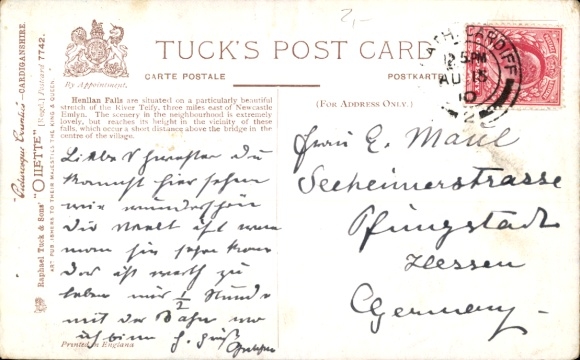 2,-
TUCK'S POST CARD
CARTE POSTALE
POSTKARTE
By Appointment.
(FOR ADDRESS ONLY.)
"Picturesque Counties"—CARDIGANSHIRE.
Raphael Tuck & Sons' "OILETTE" (Regd.) Postcard 7742.
ART PUBLISHERS TO THEIR MAJESTIES THE KING & QUEEN.
Henllan Falls are situated on a particularly beautiful
stretch of the River Teify, three miles east of Newcastle
Emlyn. The scenery in the neighbourhood is extremely
lovely, but reaches its height in the vicinity of these
falls, which occur a short distance above the bridge in the
centre of the village.
Liebe Schwester du
kannst hier sehen
wie wunderschön
die Welt ist wenn
man sie sehen kann
das ist werth zu
leben nur ½ Stunde
mit der Bahn wo
ich bin
Printed in England
CARDIFF
5 PM
AU 13
10
2
Frau E. Maul
Seeheimerstrasse
Pfungstadt
Hessen
Germany